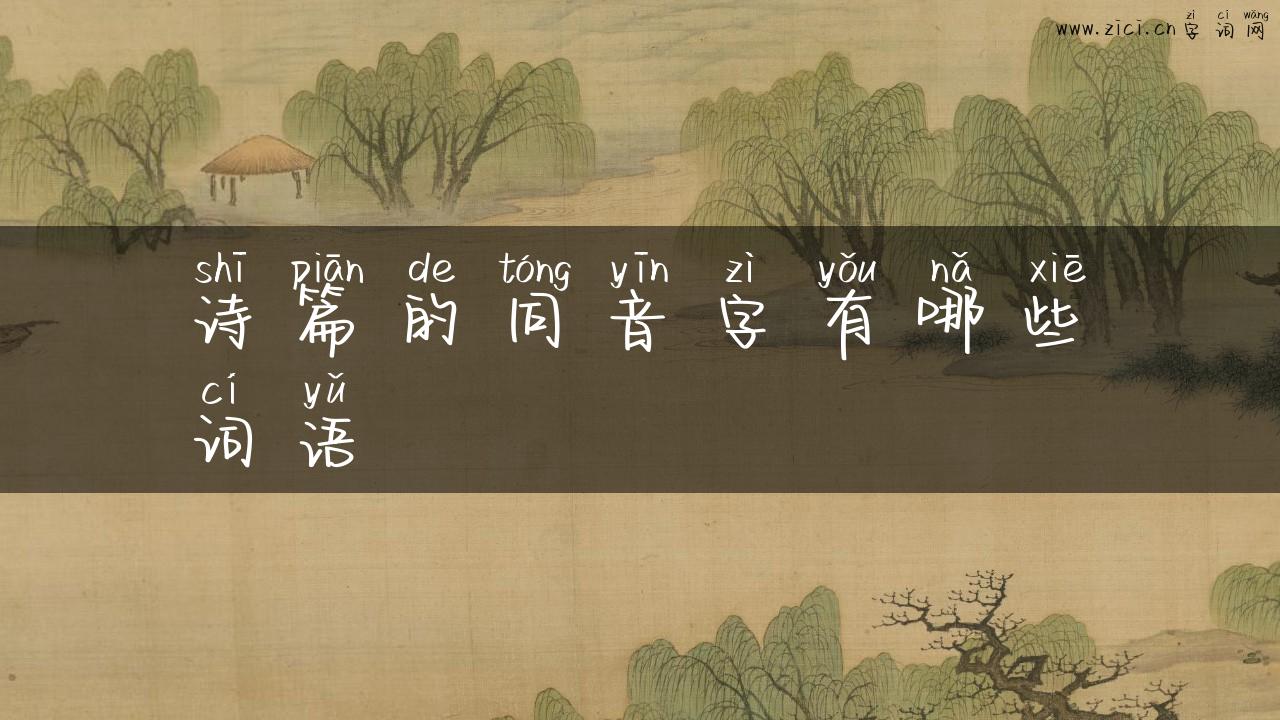 zì cí wǎng
www.zici.cn 字 词 网
shī piān de tóng yīn zì yǒu nǎ xiē
诗 篇 的 同 音 字 有 哪 些
cí yǔ
词 语